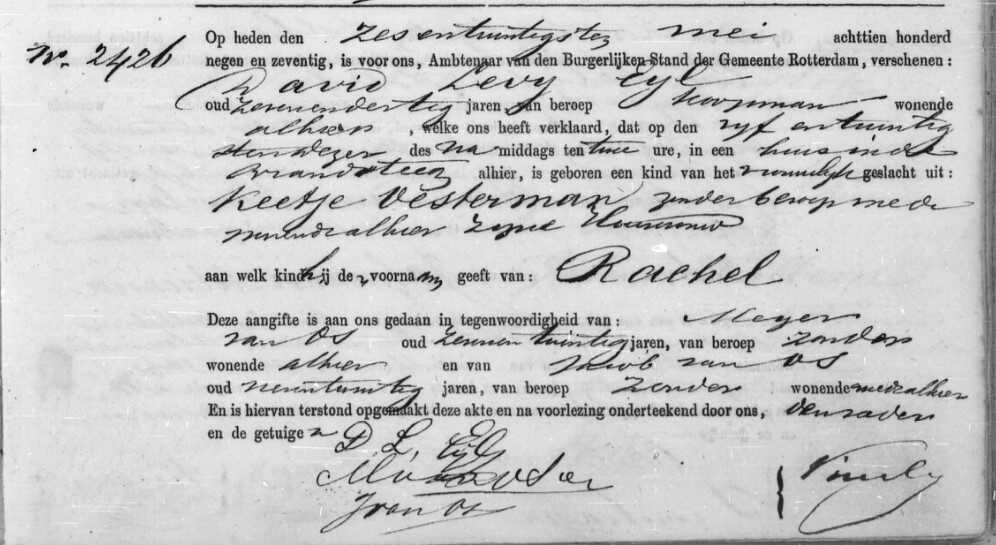 Op heden den zesentwintigsten mei achttien honderd
No. 2426
negen en zeventig, is voor ons, Ambtenaar van den Burgerlijken Stand der Gemeente Rotterdam, verschenen:
David Levy Eyl
oud zevenendertig jaren, van beroep koopman wonende
alhier, welke ons heeft verklaard, dat op den vyf entwintig
sten dezer des na middags ten twee ure, in een huis in de
Zandsteeg alhier, is geboren een kind van het vrouwelyk geslacht uit:
Keetje Vesterman zonder beroep mede
wonende alhier zyne Huisvrouw
aan welk kind hij de voornaam geeft van: Rachel
Deze aangifte is aan ons gedaan in tegenwoordigheid van: Meyer
van Os oud zevenen twintig jaren, van beroep zonder
wonende alhier en van Jacob van Os
oud vierentwintig jaren, van beroep zonder wonende mede alhier
En is hiervan terstond opgemaakt deze akte en na voorlezing onderteekend door ons, den vader
en de getuigen
D L Eyl
M van Os
J van Os